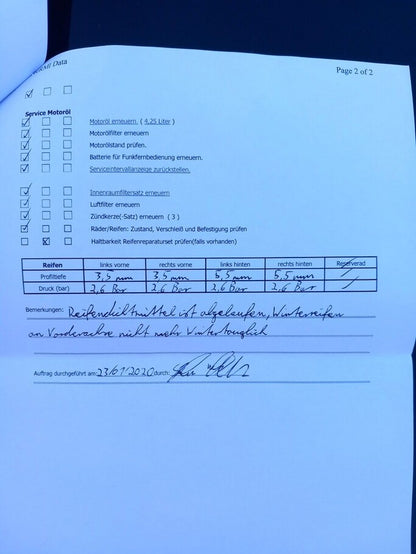 Data
Page 2 of 2
Service Motoröl
Motoröl erneuern. ( 4,25 Liter )
Motorölfilter erneuern
Motorölstand prüfen.
Batterie für Funkfernbedienung erneuern.
Serviceintervallanzeige zurückstellen.
Innenraumfiltersatz erneuern
Luftfilter erneuern
Zündkerze(-Satz) erneuern ( 3 )
Räder/Reifen: Zustand, Verschleiß und Befestigung prüfen
Haltbarkeit Reifenreparaturset prüfen(falls vorhanden)
Reifen links vorne rechts vorne links hinten rechts hinten Reserverad
Profiltiefe 3,5 mm 3,5 mm 5,5 mm 5,5 mm /
Druck (bar) 2,6 Bar 2,6 Bar 2,6 Bar 2,6 Bar /
Bemerkungen: Reifendichtmittel ist abgelaufen, Winterreifen
an Vorderachse nicht mehr Wintertauglich
Auftrag durchgeführt am: 23/01/2020 durch: